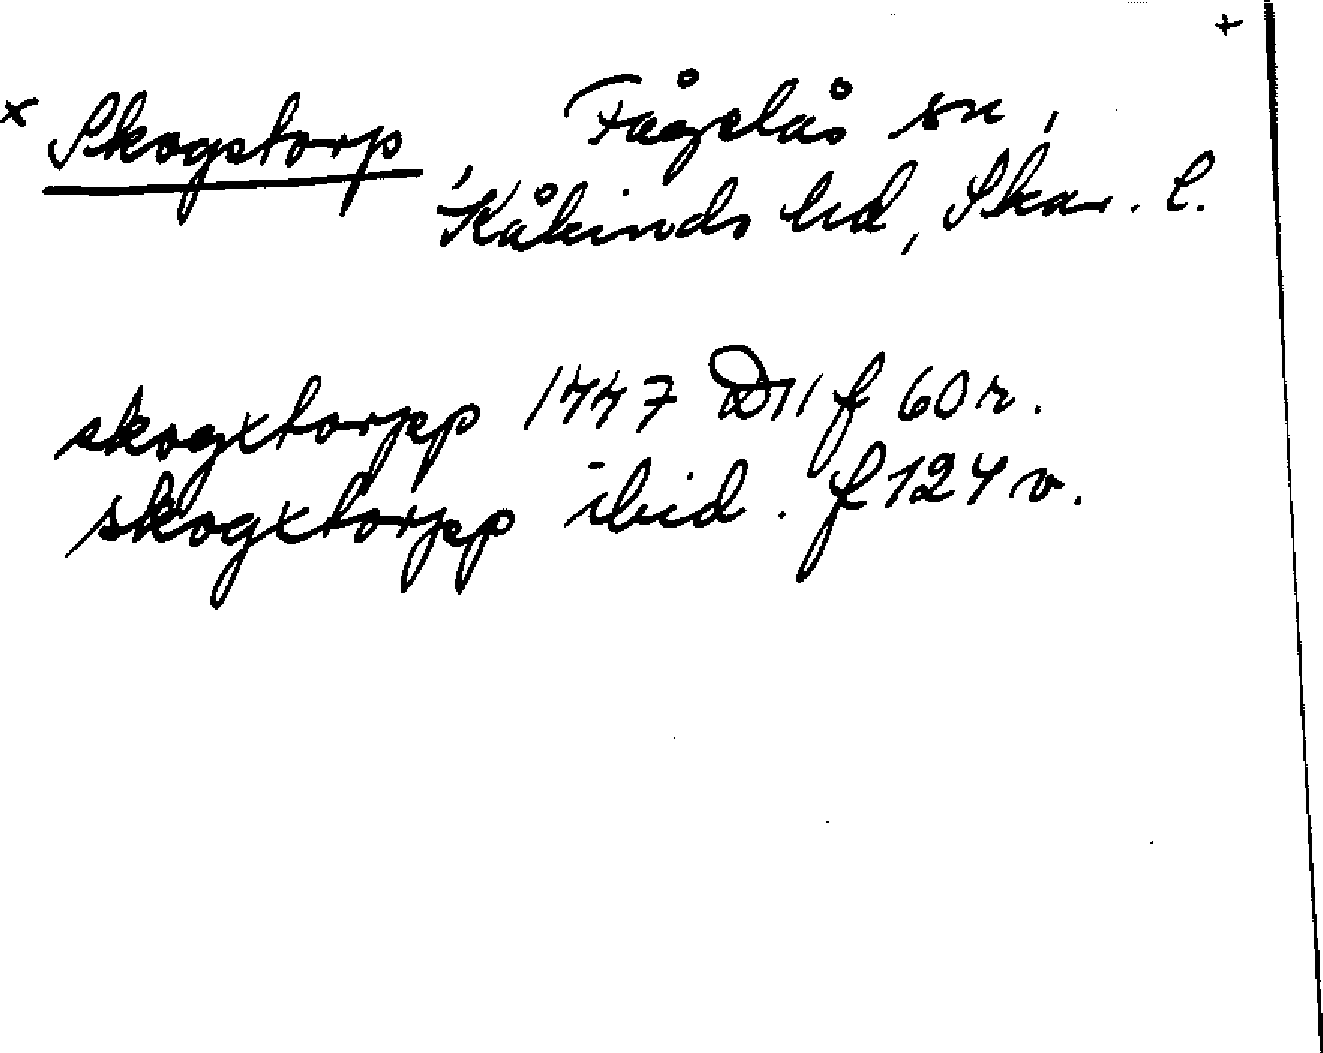 +
x Skogstorp, Fågelås sn,
Kåkinds hd, Skar. l.
skogxtorpp 1447 D11 f 60 r.
skogxtorpp ibid. f 124 v.